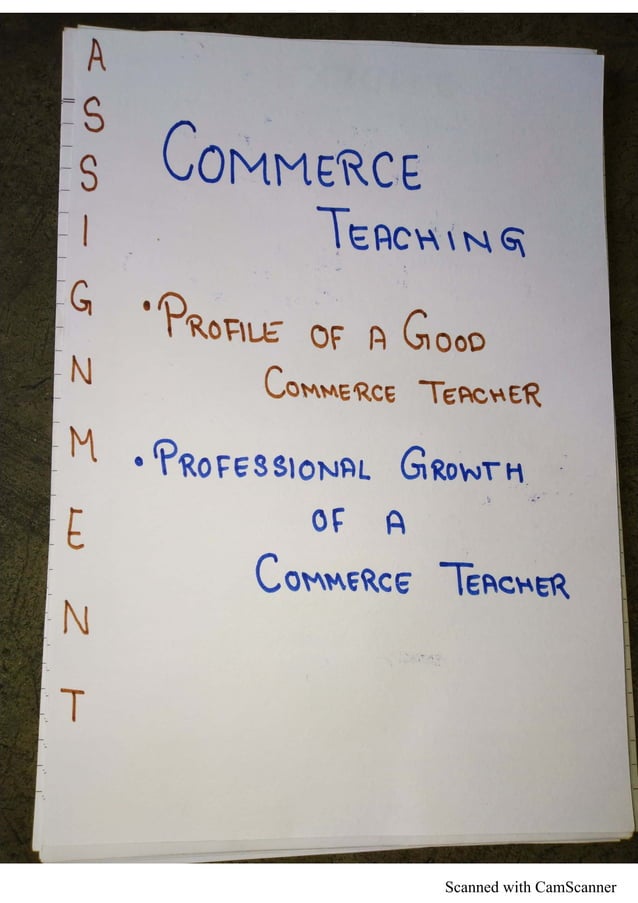 ASSIGNMENT
COMMERCE
TEACHING
• PROFILE OF A GOOD
COMMERCE TEACHER
• PROFESSIONAL GROWTH
OF A
COMMERCE TEACHER
Scanned with CamScanner